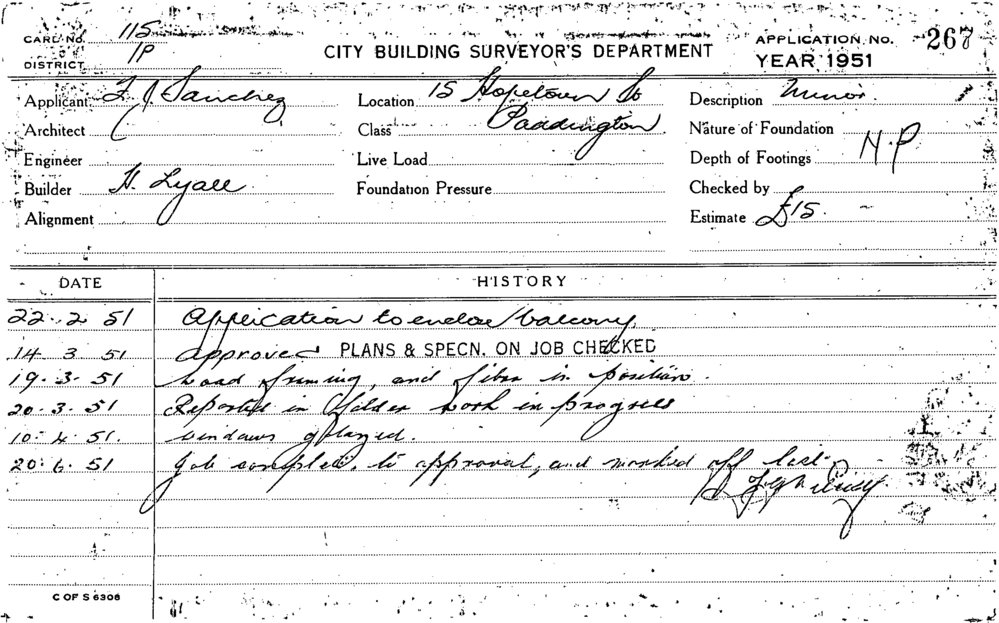 CARL No. 115
DISTRICT 1P
CITY BUILDING SURVEYOR'S DEPARTMENT
APPLICATION No. 267
YEAR 1951
Applicant J. Sanchez
Architect
Engineer
Builder H. Lyall
Alignment
Location 15 Hopetown St
Class Paddington
Live Load
Foundation Pressure
Description Minor.
Nature of Foundation
Depth of Footings N.P
Checked by
Estimate £15.
DATE HISTORY
22.2 51 Application to enclose balcony.
14 3 51 Approved PLANS & SPECN. ON JOB CHECKED
19.3.51 Wood framing, and fibro in position.
20.3.51 Reported in Folder work in progress
10.4.51. windows glazed.
20.6.51 Job complete, to approval, and marked off list.
C OF S 6306